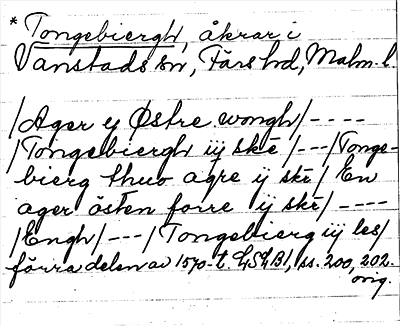 *Tongebiergh, åkrar i
Vanstads sn, Färs hd, Malm. l.
/Ager y Østre wongh/----
/Tongebiergh iij ske /---/Tonge-
bierg thuo agre ij ske/ En
ager östen forre ij ske/----
/Engh/---/Tongebierg iij les/
förra delen av 1570-t. LSLB1, ss. 200, 202.
orig.